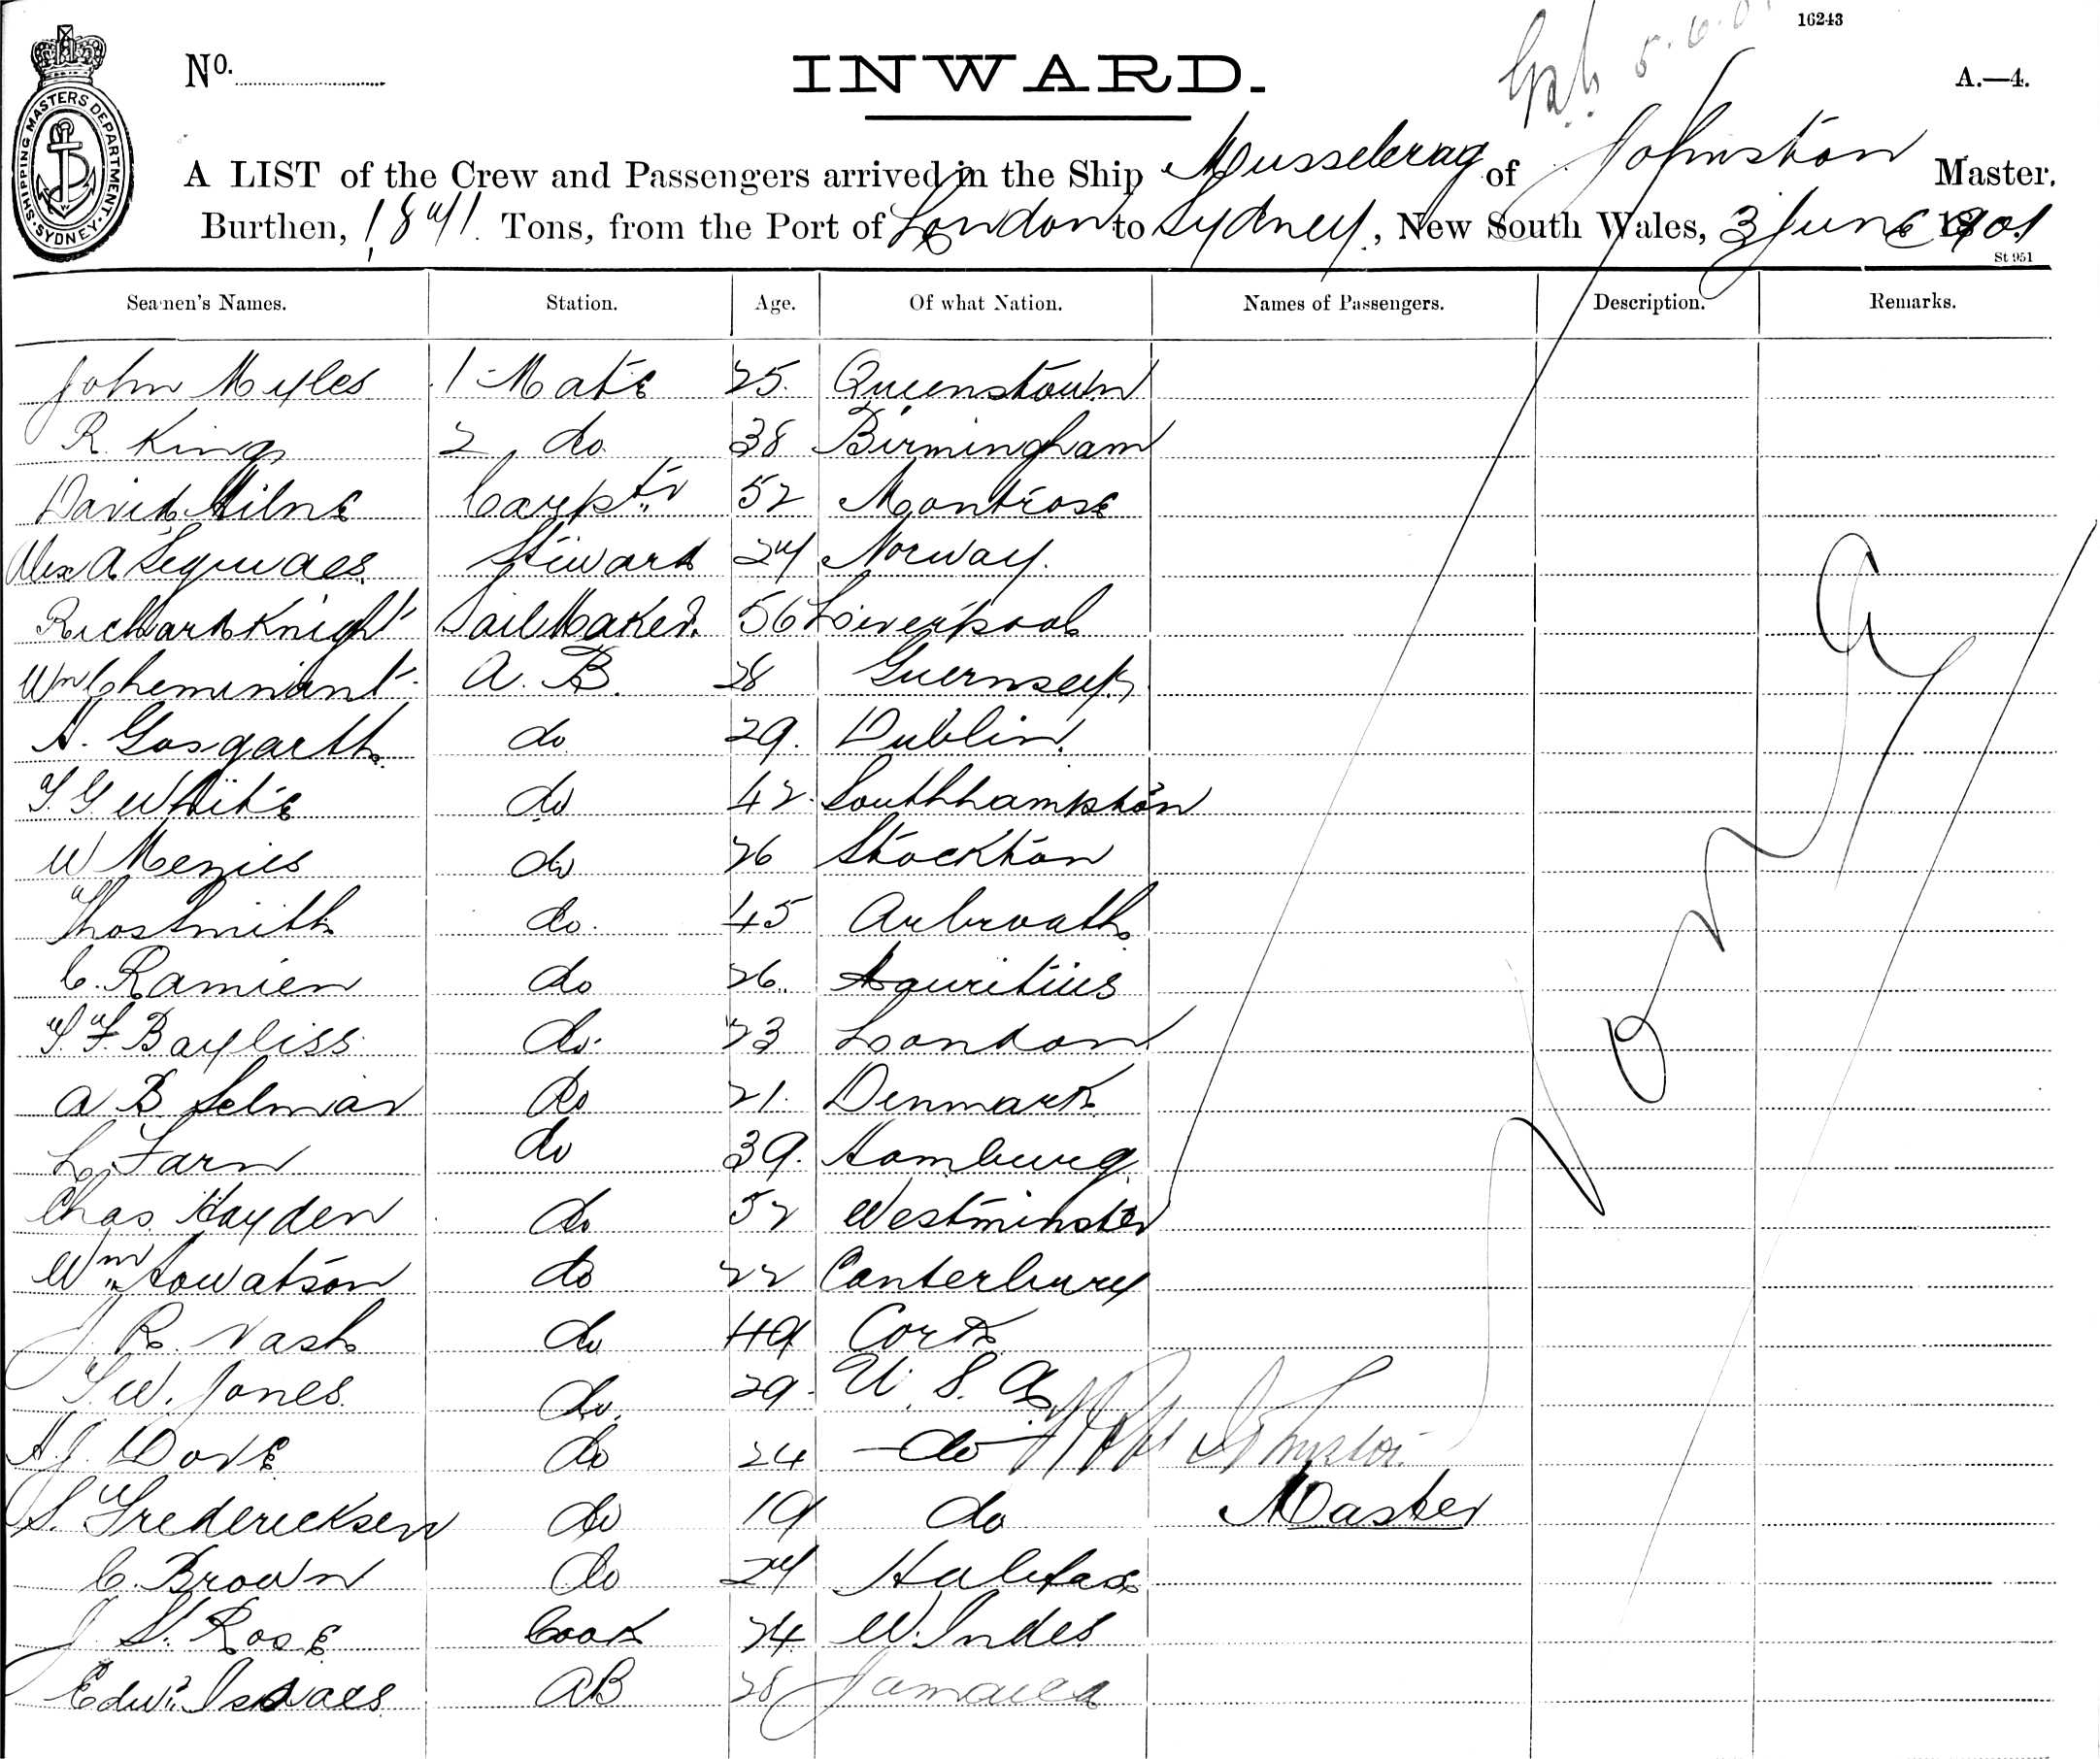 16243
No.
INWARD.
A.—4.
SHIPPING MASTERS DEPARTMENT. SYDNEY.
A LIST of the Crew and Passengers arrived in the Ship Musselcrag of Johnston Master.
Burthen, 1841 Tons, from the Port of London to Sydney, New South Wales, 3 June 1901
St 951
Seamen's Names. Station. Age. Of what Nation. Names of Passengers. Description. Remarks.
John Myles 1 Mate 25. Queenstown
R. King 2 do 38 Birmingham
David Milne Carptr 52 Montrose
Alex A 24 Norway.
Steward
Richard Knight Sailmaker. 56 Liverpool
Wm Cheminant A. B. 28 Guernsey
H. Gosgarth do 29. Dublin.
T. G White do 42. Southhampton
W Menzies do 26 Stockton
Thos Smith do. 45 Arbroath
C. Ramien do 26. Mauritius
T. F. Bayliss do. 23 London
A B Selmar do 21. Denmark
L. Farn do 39. Hamburg
Chas. Hayden do 52 Westminster
Wm Howatson do 22 Canterbury
J. R. Nash do 49 Cork
T. W. Jones do. 29. U. S. A
A. J. Dove do 24 do
Johnston
S. Fredericksen do 19 do Master
C. Brown do 24 Halifax
J. S. Rose Cook 24. W. Indes
Edwd Isaacs AB 28 Jamaica
only